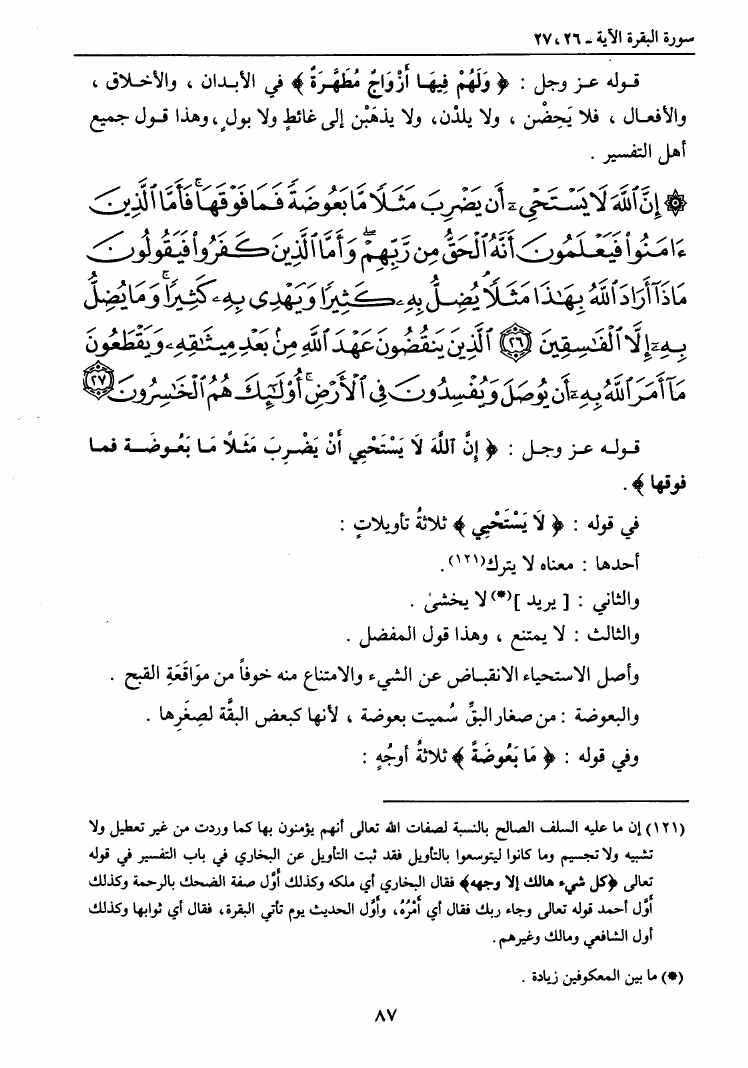 سورة البقرة الآية ـ ٢٦ ، ٢٧
قوله عز وجل : ﴿ وَلَهُمْ فِيهَا أَزْوَاجٌ مُطَهَّرَةٌ ﴾ في الأبدان ، والأخلاق ،
والأفعال ، فلا يَحِضْن ، ولا يلدْن، ولا يذهَبْن إلى غائطٍ ولا بول ٍ، وهذا قول جميع
أهل التفسير .
۞ إِنَّ ٱللَّهَ لَا يَسْتَحْىِۦٓ أَن يَضْرِبَ مَثَلًا مَّا بَعُوضَةً فَمَا فَوْقَهَا ۚ فَأَمَّا ٱلَّذِينَ
ءَامَنُوا۟ فَيَعْلَمُونَ أَنَّهُ ٱلْحَقُّ مِن رَّبِّهِمْ ۖ وَأَمَّا ٱلَّذِينَ كَفَرُوا۟ فَيَقُولُونَ
مَاذَآ أَرَادَ ٱللَّهُ بِهَـٰذَا مَثَلًا ۘ يُضِلُّ بِهِۦ كَثِيرًا وَيَهْدِى بِهِۦ كَثِيرًا ۚ وَمَا يُضِلُّ
بِهِۦٓ إِلَّا ٱلْفَـٰسِقِينَ ﴿٢٦﴾ ٱلَّذِينَ يَنقُضُونَ عَهْدَ ٱللَّهِ مِنۢ بَعْدِ مِيثَـٰقِهِۦ وَيَقْطَعُونَ
مَآ أَمَرَ ٱللَّهُ بِهِۦٓ أَن يُوصَلَ وَيُفْسِدُونَ فِى ٱلْأَرْضِ ۚ أُو۟لَـٰٓئِكَ هُمُ ٱلْخَـٰسِرُونَ ﴿٢٧﴾
قوله عز وجل : ﴿ إِنَّ ٱللَّهَ لَا يَسْتَحْيِي أَنْ يَضْرِبَ مَثَلًا مَا بَعُوضَـة فما
فوقها ﴾ .
في قوله : ﴿ لَا يَسْتَحْيِي ﴾ ثلاثةُ تأويلاتٍ :
أحدها : معناه لا يترك(١٢١) .
والثاني : [ يريد ](*) لا يخشىٰ .
والثالث : لا يمتنع ، وهذا قول المفضل .
وأصل الاستحياء الانقباض عن الشيء والامتناع منه خوفاً من مواقَعَةِ القبح .
والبعوضة : من صغار البقِّ سُميت بعوضة ، لأنها كبعض البقَّة لصِغَرِها .
وفي قوله : ﴿ مَا بَعُوضَةً ﴾ ثلاثةُ أوجُهٍ :
(١٢١) إن ما عليه السلف الصالح بالنسبة لصفات الله تعالى أنهم يؤمنون بها كما وردت من غير تعطيل ولا
تشبيه ولا تجسيم وما كانوا ليتوسعوا بالتأويل فقد ثبت التأويل عن البخاري في باب التفسير في قوله
تعالى ﴿كل شيء هالك إلا وجهه﴾ فقال البخاري أي ملكه وكذلك أوَّل صفة الضحك بالرحمة وكذلك
أوَّل أحمد قوله تعالى وجاء ربك فقال أي أمْرُهُ، وأوَّل الحديث يوم تأتي البقرة، فقال أي ثوابها وكذلك
أول الشافعي ومالك وغيرهم.
(*) ما بين المعكوفين زيادة .
٨٧